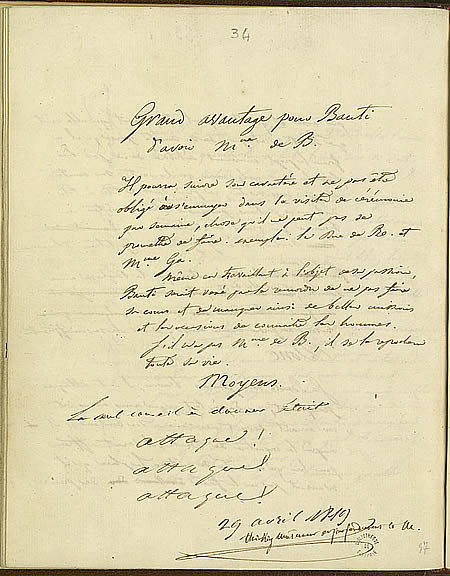 34
Grand avantage pour Banti
d'avoir Mme de B.
Il pourra suivre son caractère et ne pas être
obligé de s'ennuyer dans la visite de cérémonie
par semaine, chose qu'il ne peut pas se
promettre de faire. exemple: la Dne de Be. et
Mme Ge.
Même en travaillant à l'objet de sa passion,
Banti serait vexé par le remords de ne pas faire
sa cour et de manquer ainsi de belles
et les occasions de connaître les hommes.
S'il n'a pas Mme de B., il se le reprochera
toute sa vie.
Moyens.
Le seul conseil à donner était
attaque!
attaque!
attaque!
29 avril 1819